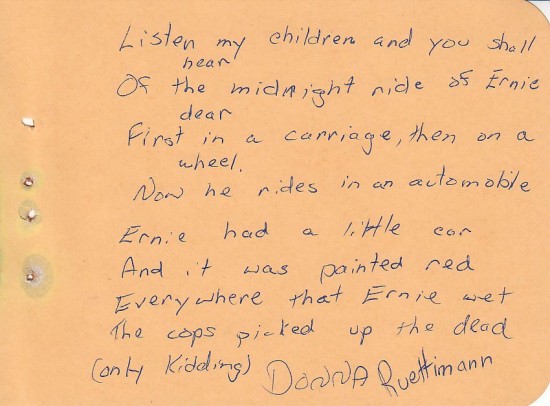 Listen my children and you shall
hear
Of the midnight ride of Ernie
dear
First in a carriage, then on a
wheel.
Now he rides in an automobile
Ernie had a little car
And it was painted red
Everywhere that Ernie wet
The cops picked up the dead
(only Kidding) DONNA Ruettimann